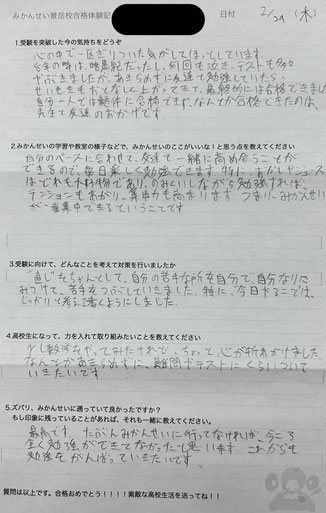 みかんせい景岳校合格体験記
日付 2/29 (木)
1.受験を突破した今の気持ちをどうぞ
心の中で一区ぎりついた気がしてほっとしています。
去年の時は、暗黒紀だったし、何回も泣き、テストも
やぶきましたが、あきらめずに友達と勉強していたら、
せいせきもおとなしく上がってきて、最終的には合格できました。
自分一人では絶体に合格できず、なんとか合格できたのは、
先生と友達のおかげです。
2.みかんせいの学習や教室の様子などで、みかんせいのここがいいな！と思う点を教えてください
自分のペースに合わせて、友達と一緒に高め合うことが
できるので、毎日楽しく勉強できます。特に、おかしやジュース
はどれも大好物であり、のみくいしながら勉強すれば、
テンションもあがり、集中力も高まります。つまり、みかんせい
が一番集中できるということです
3.受験に向けて、どんなことを考えて対策を行いましたか
"直し"をちゃんとして、自分の苦手な所を自分で、自分なりに
みつけて、苦手をつぶしていきました。特に、今日やることでは、
しっかりと考えて書くようにしました。
4.高校生になって、力を入れて取り組みたいことを教えてください
少し数学をやってみたけれど、ちょっと心が折れかけました。
なんとかあきらめずに、難問やテストにくらいついて
いきたいです。
5.ズバリ、みかんせいに通っていて良かったですか？
もし印象に残っていることがあれば、それも一緒に教えてください。
最高です。たぶんみかんせいに行ってなければ、今ごろ
全く勉強ができてなかったと思います。これからも
勉強をがんばっていきたいです。
質問は以上です。合格おめでとう！！！！素敵な高校生活を送ってね！！